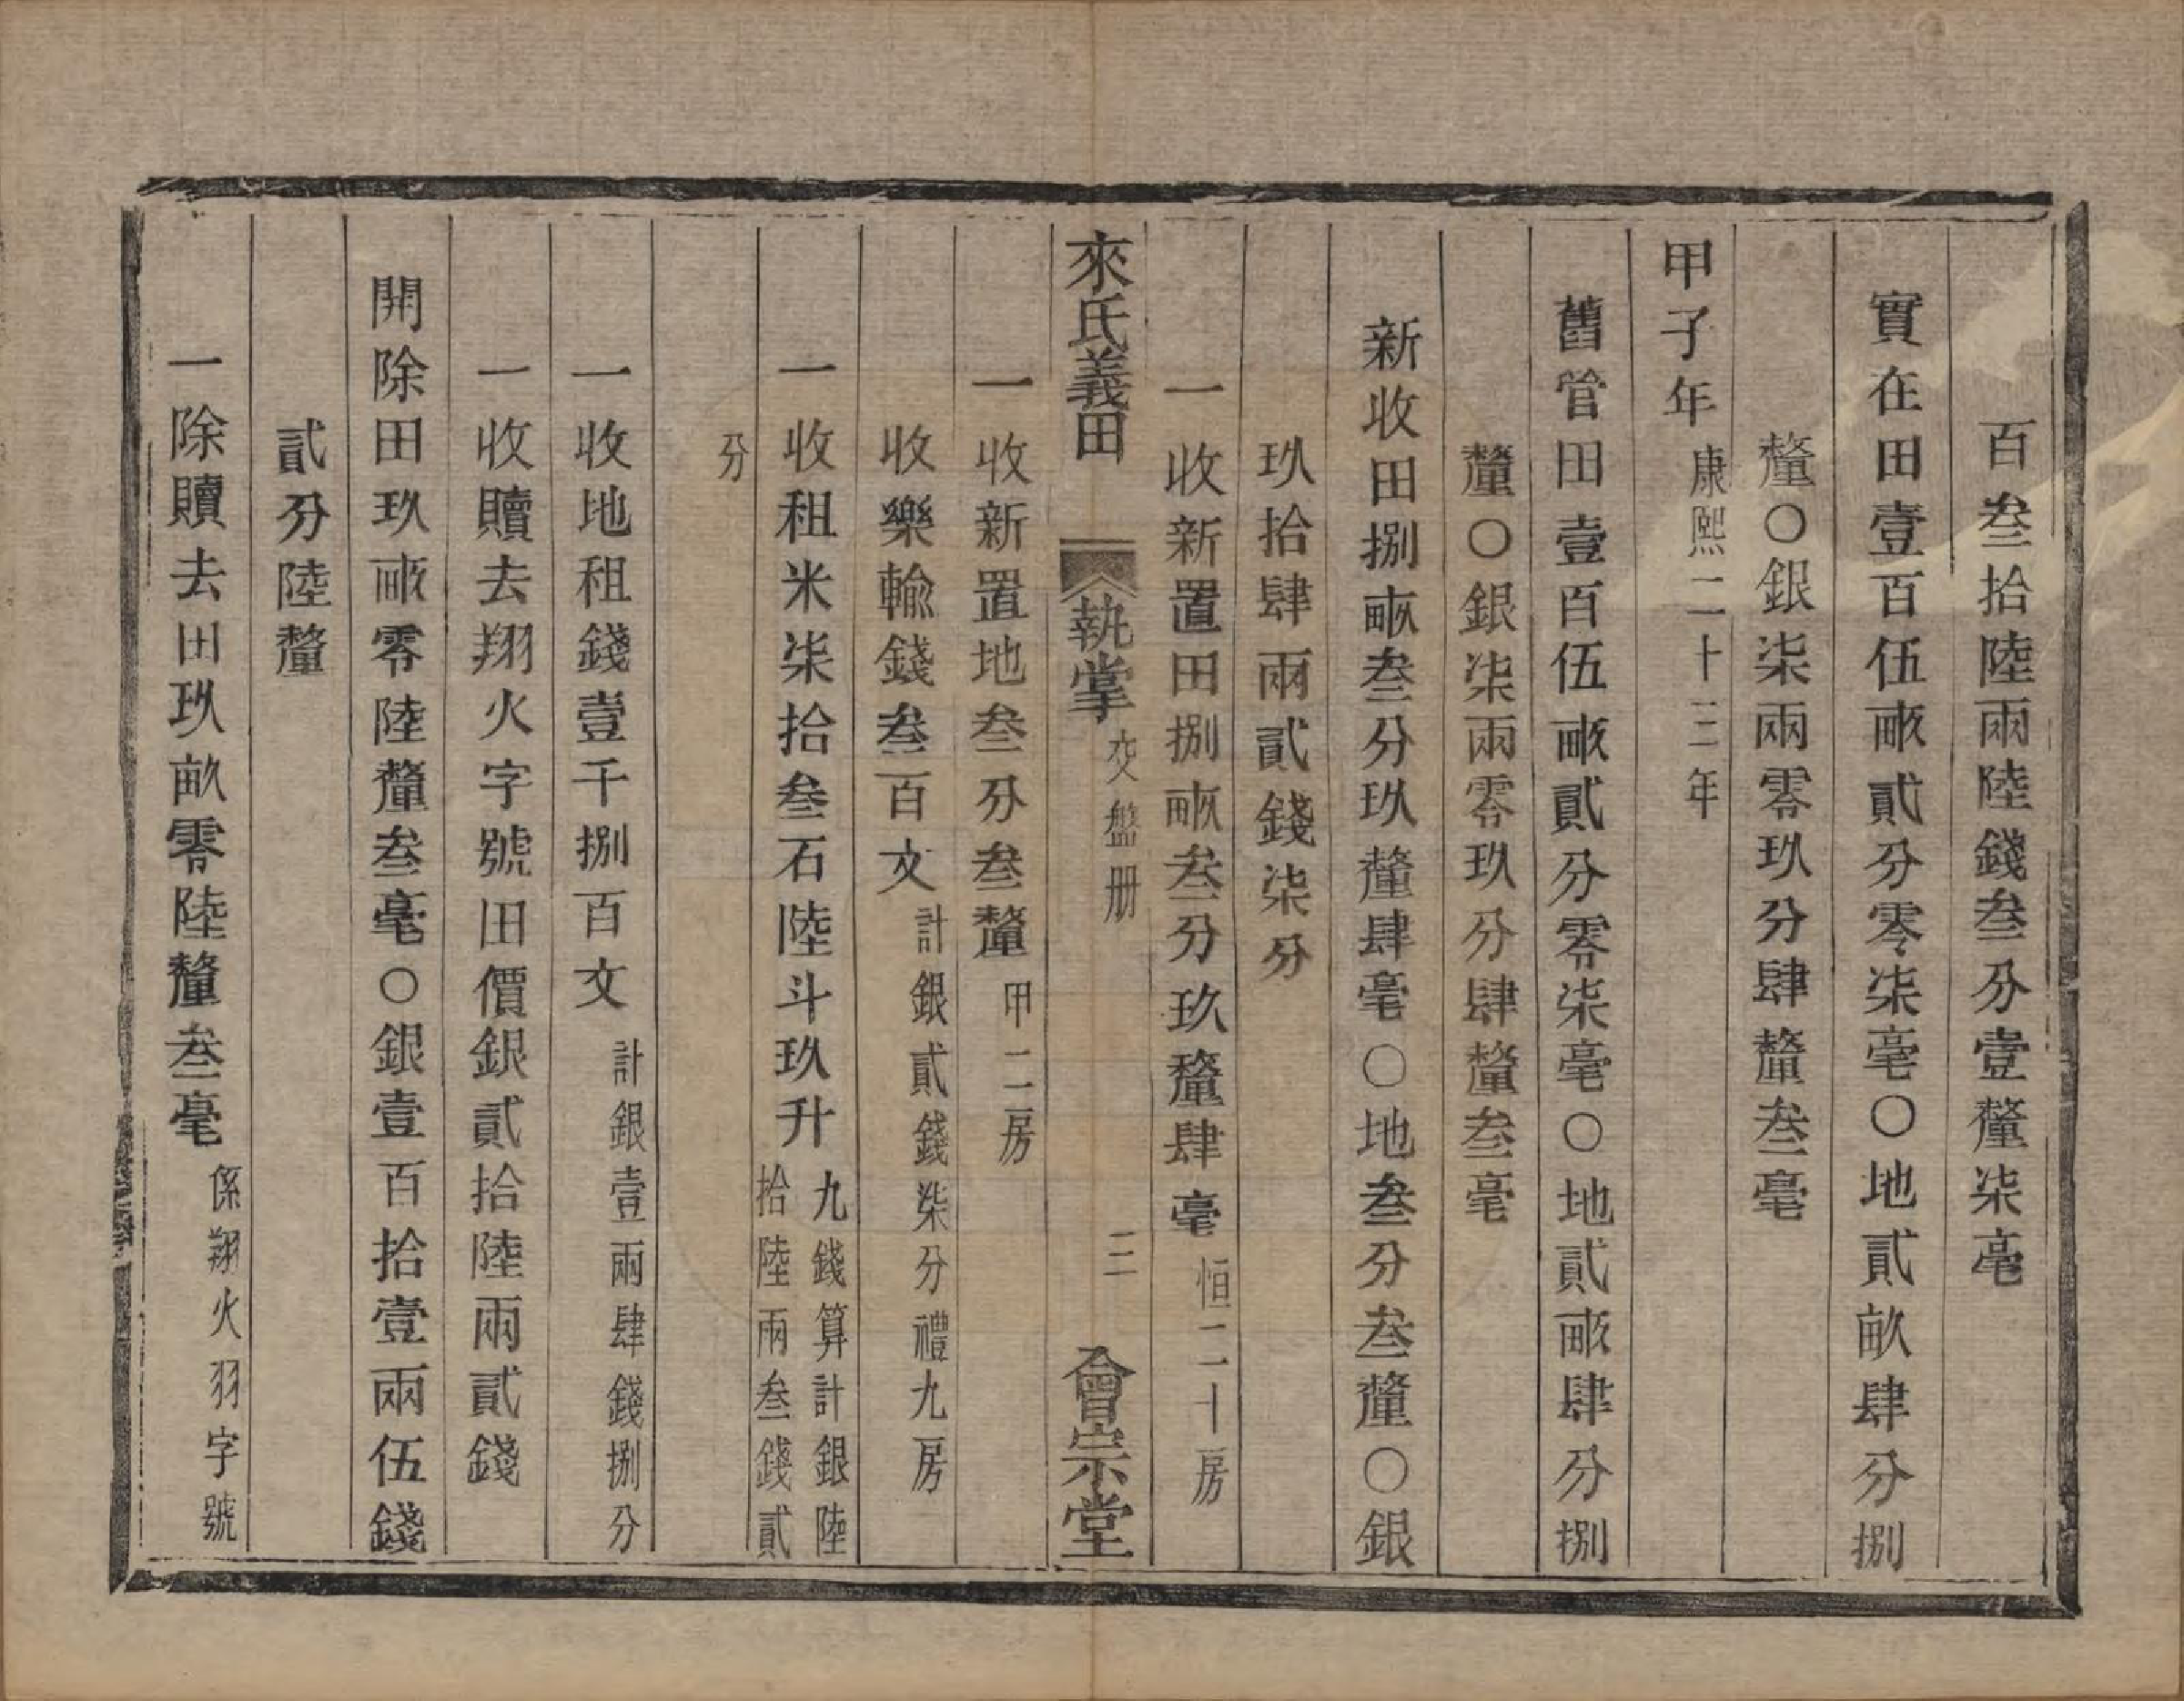 百叁拾陸兩陸錢叁分壹釐柒毫
實在田壹百伍畝貳分零柒毫〇地貳畝肆分捌
釐〇銀柒兩零玖分肆釐叁毫
甲子年康熙二十三年
舊管田壹百伍畝貳分零柒毫〇地貳畝肆分捌
釐〇銀柒兩零玖分肆釐叁毫
新收田捌畝叁分玖釐肆毫〇地叁分叁釐〇銀
玖拾肆兩貳錢柒分
一收新置田捌畝叁分玖釐肆毫恒二十房
來氏義田 執掌交盤册 三 會宗堂
一收新置地叁分叁釐甲二房
收樂輸錢叁百文計銀貳錢柒分禮九房
一收租米柒拾叁石陸斗玖升九錢算計銀陸拾陸兩叁錢貳
分
一收地租錢壹千捌百文計銀壹兩肆錢捌分
一收贖去翔火字號田價銀貳拾陸兩貳錢
開除田玖畝零陸釐叁毫〇銀壹百拾壹兩伍錢
貳分陸釐
一除贖去田玖畝零陸釐叁毫係翔火羽字號